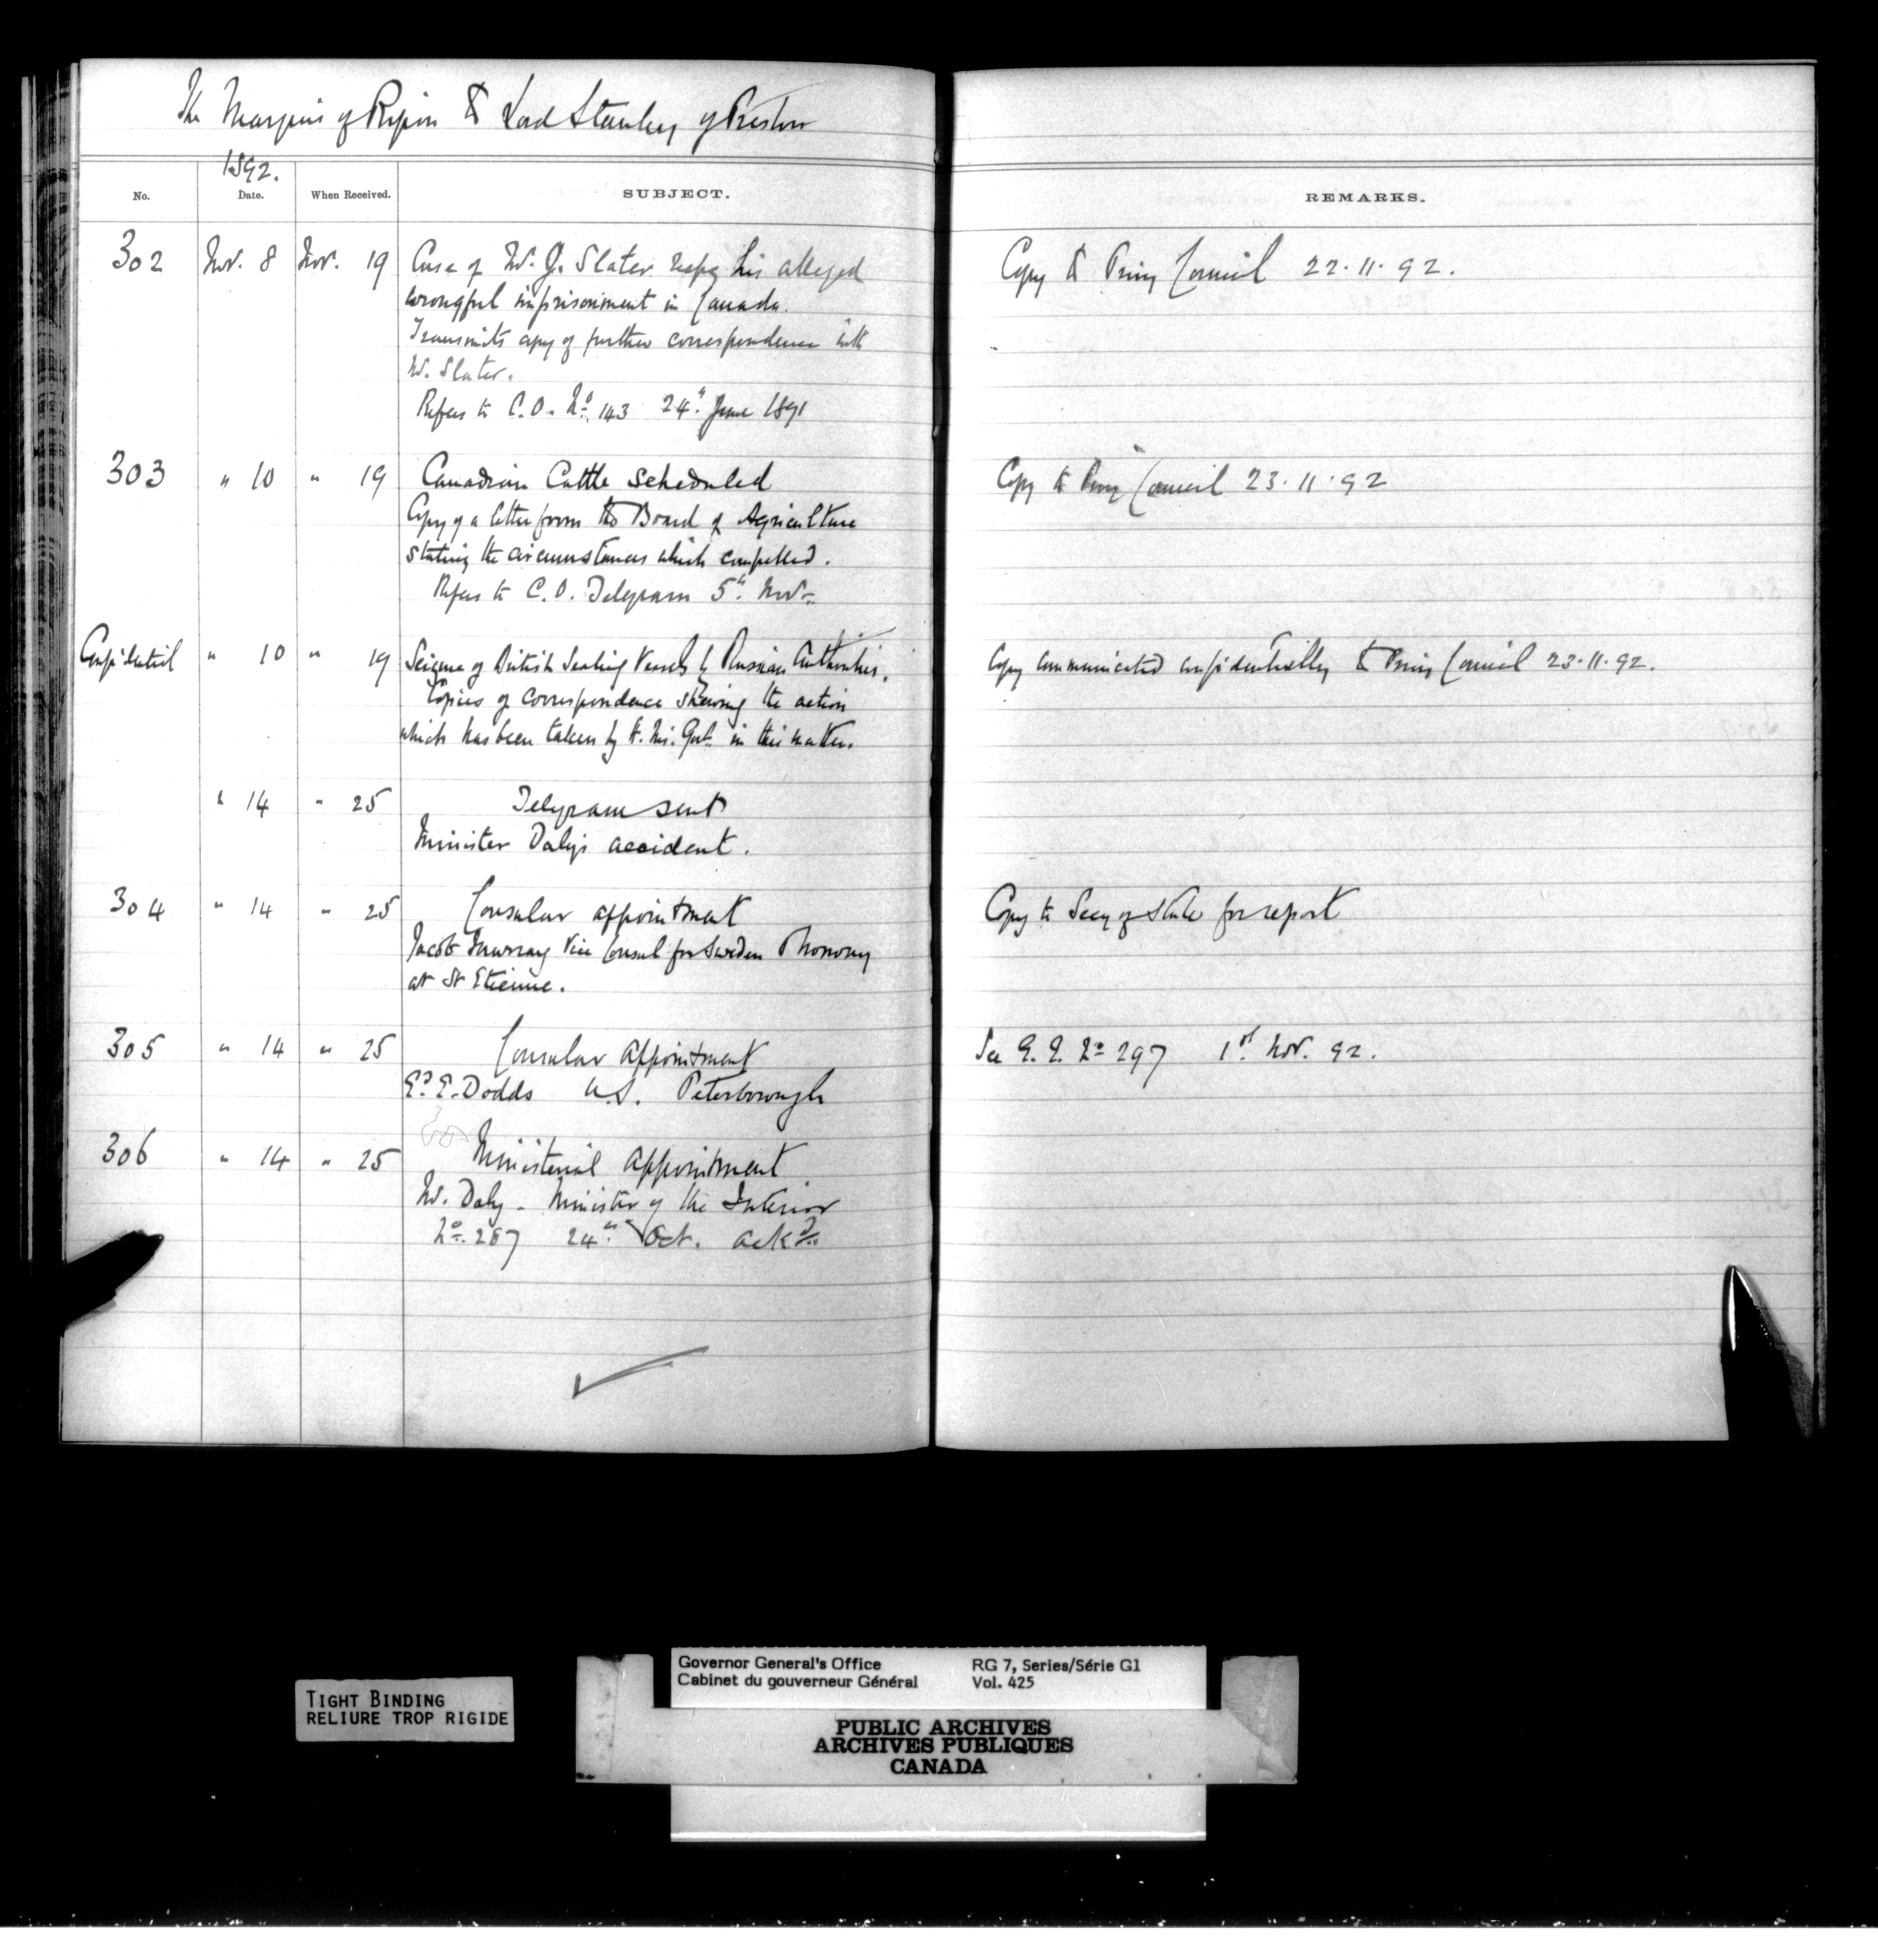 The Marquis of Ripon to Lord Stanley of Preston
1892.
No. Date. When Received. SUBJECT. REMARKS.
302 Nov. 8 Nov. 19 Case of Mr. J. Slater respg his alleged Copy to Privy Council 22.11.92.
wrongful imprisonment in Canada.
Transmits copy of further correspondence with
Mr. Slater.
Refers to C.O. No 143 24th June 1891
303 " 10 " 19 Canadian Cattle scheduled Copy to Privy Council 23.11.92
Copy of a letter from the Board of Agriculture
stating the circumstances which compelled.
Refers to C.O. Telegram 5th Novr
Confidential " 10 " 19 Seizure of British Sealing Vessels by Russian Authorities. Copy communicated confidentially to Privy Council 23.11.92.
Copies of correspondence shewing the action
which has been taken by H.M. Govt. in this matter.
" 14 " 25 Telegram sent
Minister Daly's accident.
304 " 14 " 25 Consular appointment Copy to Secy of State for report
Jacob Vice Consul for Sweden & Norway
at St Etienne.
305 " 14 " 25 Consular Appointment See No 297 1st Nov. 92.
E. Dodds U.S. Peterborough
306 " 14 " 25 Ministerial Appointment
Mr. Daly - Minister of the Interior
No. 267 24th Oct. ackd.
TIGHT BINDING
RELIURE TROP RIGIDE
Governor General's Office RG 7, Series/Série G1
Cabinet du gouverneur Général Vol. 425
PUBLIC ARCHIVES
ARCHIVES PUBLIQUES
CANADA